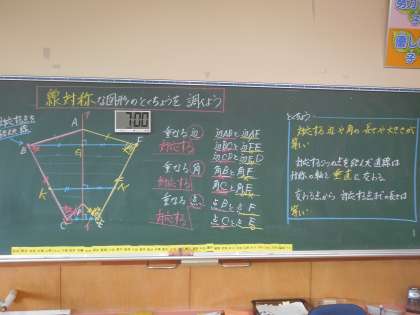 線対称な図形のとくちょうを調べよう
7:00
A
B
F
G
K
N
C
E
重なる辺
対応する
辺ABと辺AF
辺BCと辺FE
辺CDと辺ED
重なる角
対応する
角Bと角F
角Cと角E
重なる点
対応する
点Bと点F
点Cと点E
とくちょう
対応する辺や角の長さや大きさが
等しい
対応する2つの点を結んだ直線は
対称の軸と垂直に交わる
交わる点から対応する点までの長さは
等しい